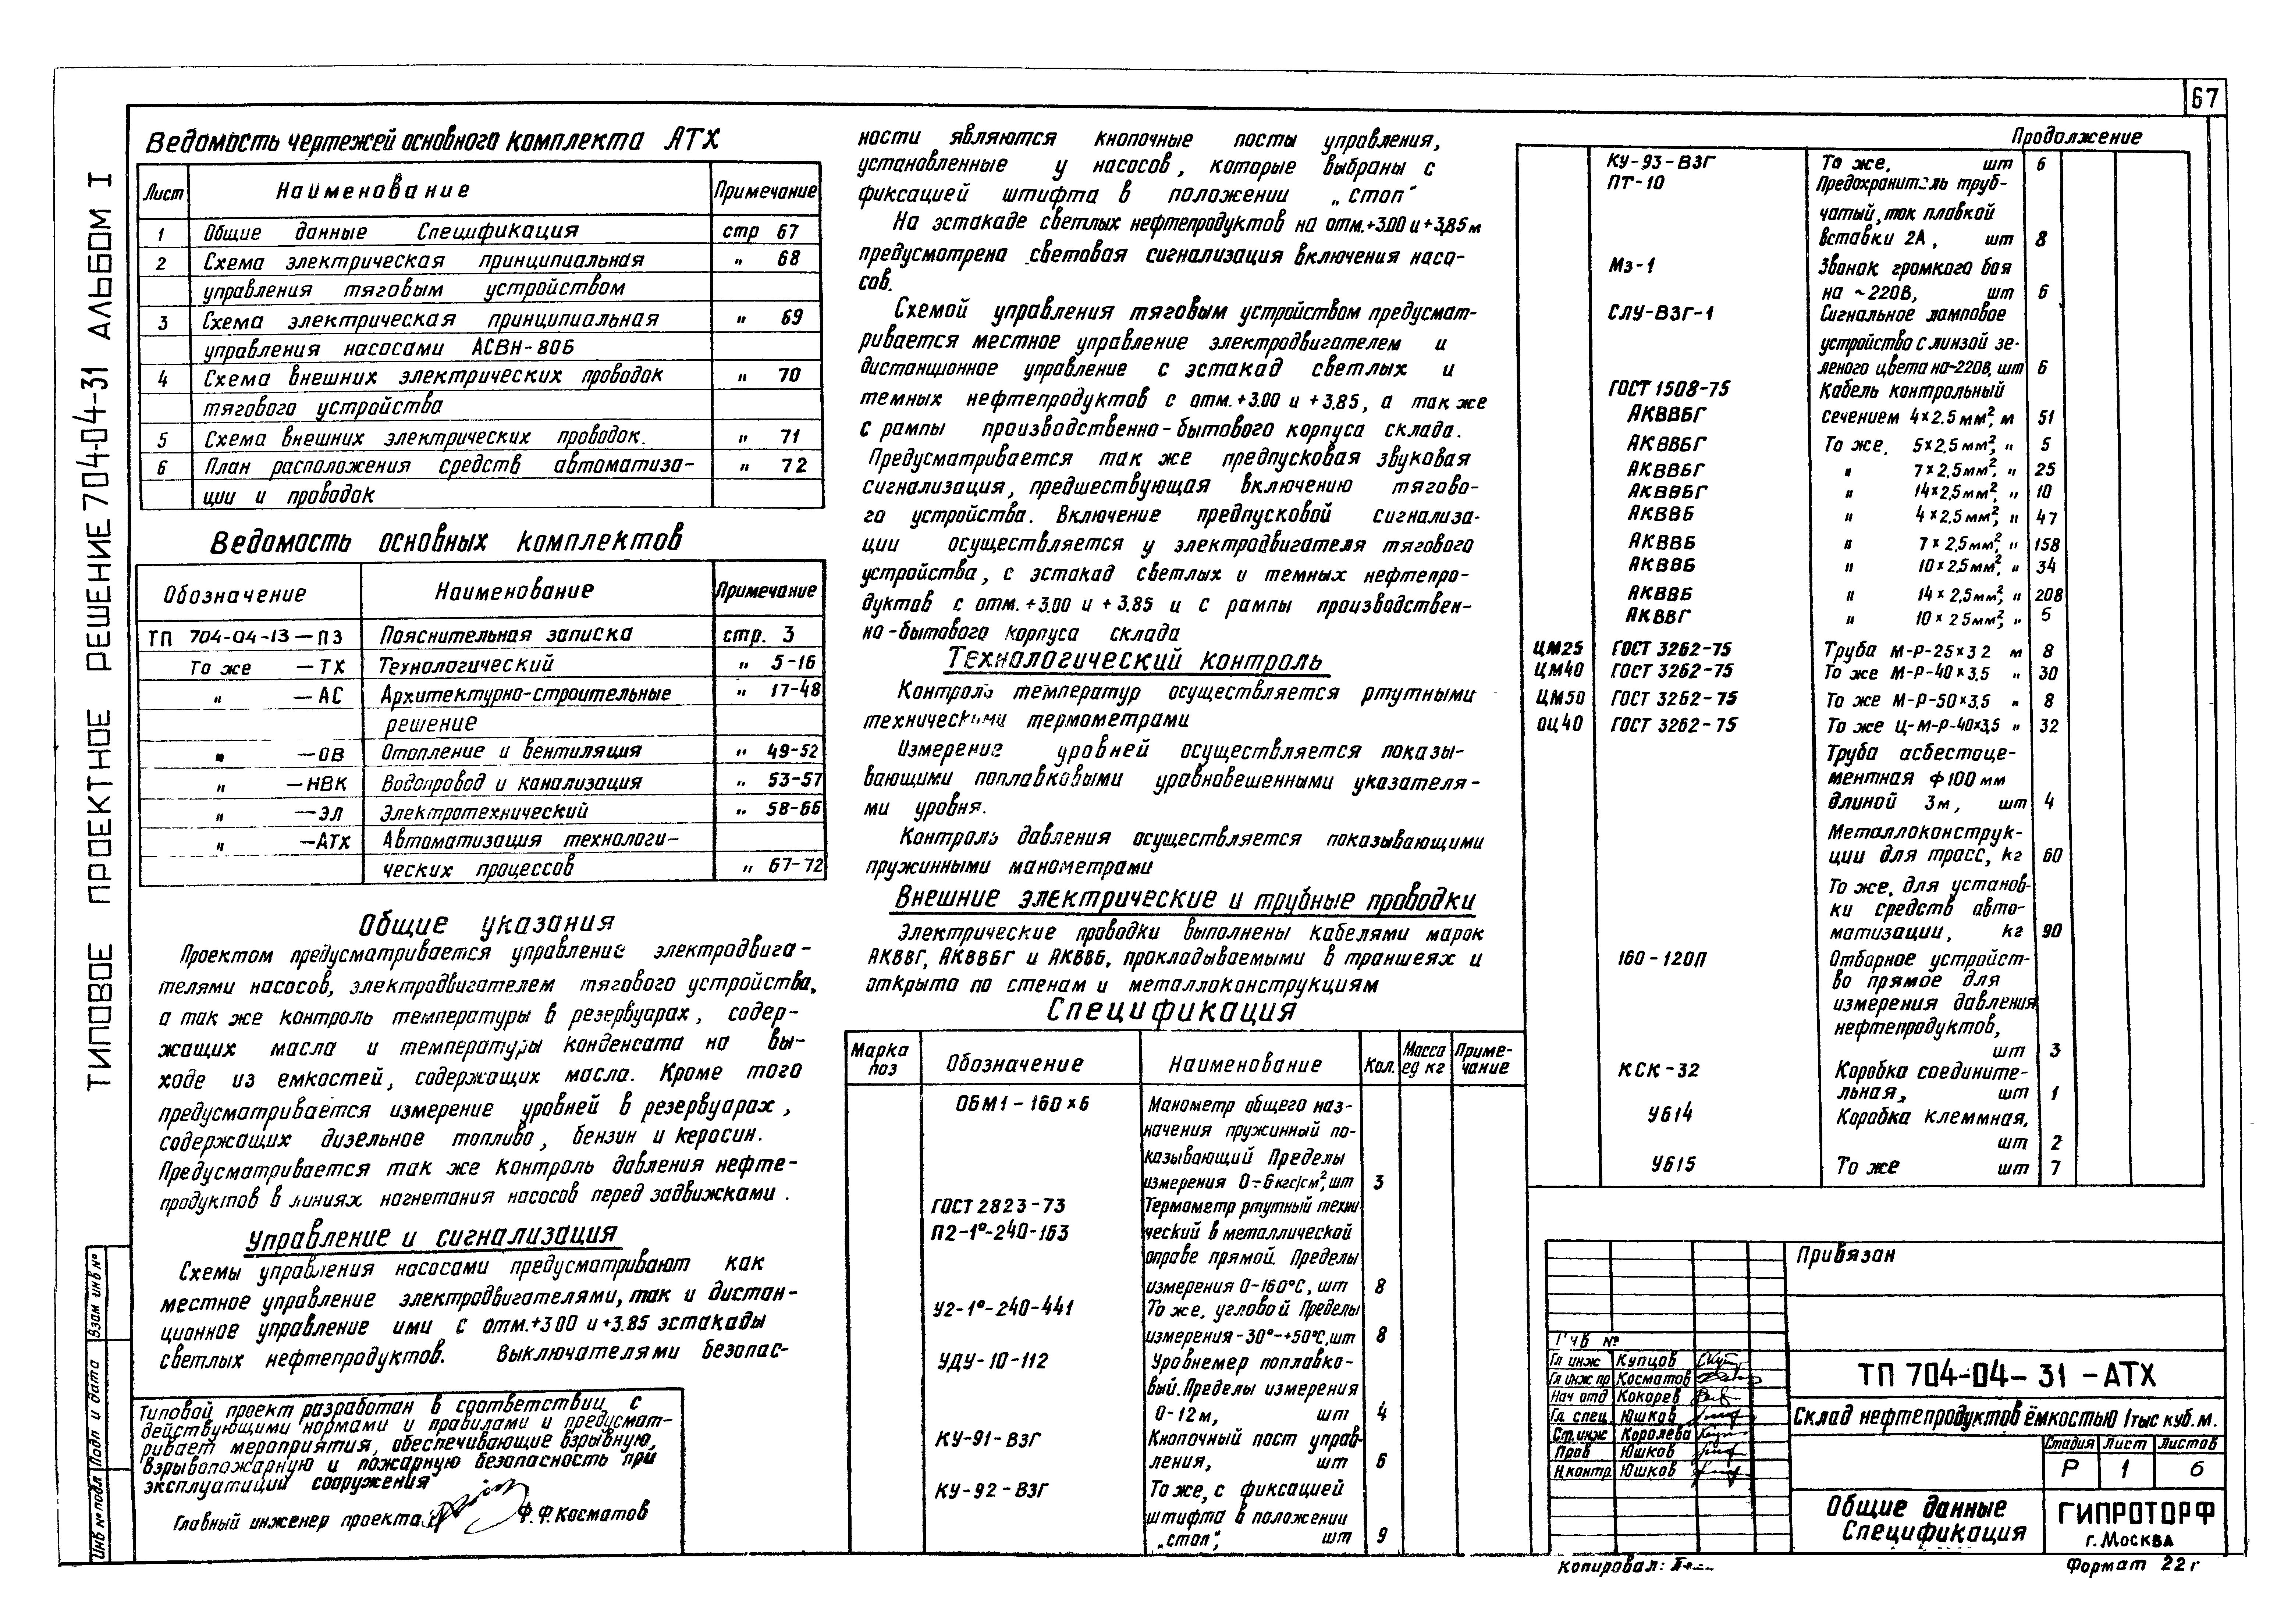 67
ТИПОВОЕ ПРОЕКТНОЕ РЕШЕНИЕ 704-04-31 АЛЬБОМ I
Ведомость чертежей основного комплекта АТХ
Лист Наименование Примечание
1 Общие данные Спецификация стр 67
2 Схема электрическая принципиальная " 68
управления тяговым устройством
3 Схема электрическая принципиальная " 69
управления насосами АСВН-80Б
4 Схема внешних электрических проводок " 70
тягового устройства
5 Схема внешних электрических проводок. " 71
6 План расположения средств автоматиза- " 72
ции и проводок
Ведомость основных комплектов
Обозначение Наименование Примечание
ТП 704-04-13-ПЗ Пояснительная записка стр. 3
То же -ТХ Технологический " 5-16
" -АС Архитектурно-строительные " 17-48
решение
" -ОВ Отопление и вентиляция " 49-52
" -НВК Водопровод и канализация " 53-57
" -ЭЛ Электротехнический " 58-66
" -АТХ Автоматизация технологи-
ческих процессов " 67-72
Общие указания
Проектом предусматривается управление электродвига-
телями насосов, электродвигателем тягового устройства,
а так же контроль температуры в резервуарах, содер-
жащих масла и температуры конденсата на вы-
ходе из емкостей, содержащих масла. Кроме того
предусматривается измерение уровней в резервуарах,
содержащих дизельное топливо, бензин и керосин.
Предусматривается так же контроль давления нефте-
продуктов в линиях нагнетания насосов перед задвижками.
Управление и сигнализация
Схемы управления насосами предусматривают как
местное управление электродвигателями, так и дистан-
ционное управление ими с отм.+3 00 и +3.85 эстакады
светлых нефтепродуктов. Выключателями безопас-
Типовой проект разработан в соответствии с
действующими нормами и правилами и предусмат-
ривает мероприятия, обеспечивающие взрывную,
взрывопожарную и пожарную безопасность при
эксплуатиции сооружения
Главный инженер проекта Ф.Ф.Косматов
Инв № подл Подп и дата Взам инв №
ности являются кнопочные посты управления,
установленные у насосов, которые выбраны с
фиксацией штифта в положении „стоп"
На эстакаде светлых нефтепродуктов на отм.+3.00 и +3,85 м
предусмотрена световая сигнализация включения насо-
сов.
Схемой управления тяговым устройством предусмат-
ривается местное управление электродвигателем и
дистанционное управление с эстакад светлых и
темных нефтепродуктов с отм.+3.00 и +3,85, а так же
с рампы производственно-бытового корпуса склада.
Предусматривается так же предпусковая звуковая
сигнализация, предшествующая включению тягово-
го устройства. Включение предпусковой сигнализа-
ции осуществляется у электродвигателя тягового
устройства, с эстакад светлых и темных нефтепро-
дуктов с отм. +3.00 и +3.85 и с рампы производствен-
но-бытового корпуса склада
Технологический контроль
Контроль температур осуществляется ртутными
техническими термометрами
Измерение уровней осуществляется показы-
вающими поплавковыми уравновешенными указателя-
ми уровня.
Контроль давления осуществляется показывающими
пружинными манометрами
Внешние электрические и трубные проводки
Электрические проводки выполнены кабелями марок
АКВВГ, АКВВБГ и АКВВБ, прокладываемыми в траншеях и
открыто по стенам и металлоконструкциям
Спецификация
Марка поз Обозначение Наименование Кол. Масса ед кг Приме-чание
ОБМ1-160×6 Манометр общего наз-
начения пружинный по-
казывающий Пределы
измерения 0÷6кгс/см², шт 3
ГОСТ 2823-73 Термометр ртутный техни
П2-1°-240-163 ческий в металлической
оправе прямой. Пределы
измерения 0-160°С, шт 8
У2-1°-240-441 То же, угловой Пределы
измерения -30°-+50°С, шт 8
УДУ-10-112 Уровнемер поплавко-
вый. Пределы измерения
0-12м, шт 4
КУ-91-ВЗГ Кнопочный пост управ-
ления, шт 6
КУ-92-ВЗГ То же, с фиксацией
штифта в положении
„стоп", шт 9
Продолжение
КУ-93-ВЗГ То же, шт 6
ПТ-10 Предохранитель труб-
чатый, ток плавкой
вставки 2А, шт 8
Мз-1 Звонок громкого боя
на ~220В, шт 6
СЛУ-ВЗГ-1 Сигнальное ламповое
устройство с линзой зе-
леного цвета на~220в, шт 6
ГОСТ 1508-75 Кабель контрольный
АКВВБГ сечением 4×2.5 мм², м 51
АКВВБГ То же, 5×2.5мм², " 5
АКВВБГ " 7×2.5мм², " 25
АКВВБГ " 14×2,5мм², " 10
АКВВБ " 4×2.5мм², " 47
АКВВБ " 7×2,5мм², " 158
АКВВБ " 10×2.5мм², " 34
АКВВБ " 14×2,5мм², " 208
АКВВГ " 10×2 5мм², " 5
ЦМ25 ГОСТ 3262-75 Труба М-Р-25×3 2 м 8
ЦМ40 ГОСТ 3262-75 То же М-Р-40×3.5 " 30
ЦМ50 ГОСТ 3262-75 То же М-Р-50×3.5 " 8
ОЦ40 ГОСТ 3262-75 То же Ц-М-Р-40×3,5 " 32
Труба асбестоце-
ментная ф100мм
длиной 3м, шт 4
Металлоконструк-
ции для трасс, кг 60
То же, для установ-
ки средств авто-
матизации, кг 90
160-120П Отборное устройст-
во прямое для
измерения давления
нефтепродуктов,
шт 3
КСК-32 Коробка соедините-
льная, шт 1
У614 Коробка клеммная,
шт 2
У615 То же шт 7
Привязан
Инв №
Гл инж Купцов
Гл инж пр Косматов
Нач отд Кокорев
Гл. спец. Юшков
Ст.инж Королева
Пров Юшков
Н.контр. Юшков
ТП 704-04-31-АТХ
Склад нефтепродуктов ёмкостью 1тыс куб. м.
Стадия Лист Листов
Р 1 6
Общие данные
Спецификация
ГИПРОТОРФ
г. Москва
Копировал:
Формат 22г